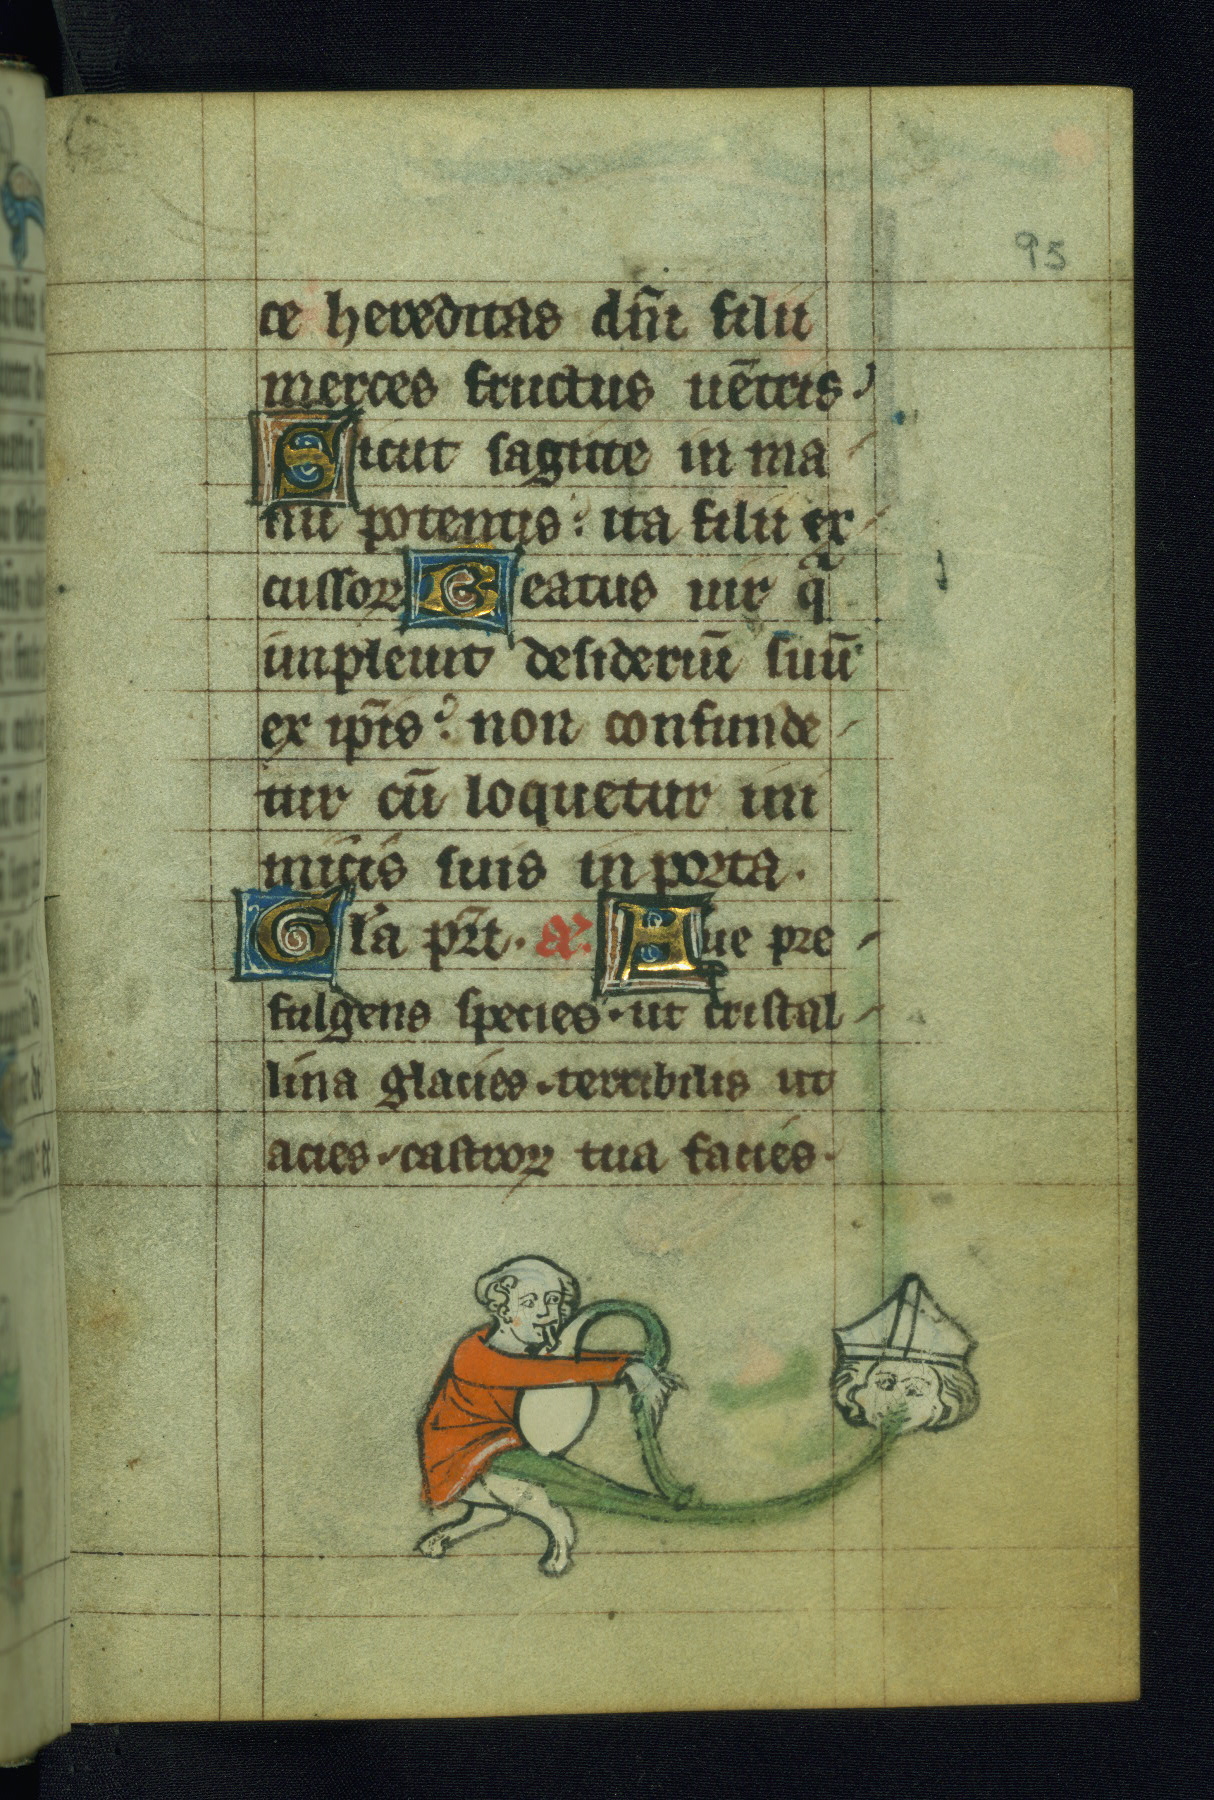 95
ce hereditas dn̄i filii
merces fructus uētris.
Sicut sagitte in ma
nu potentis: ita filii ex
cussoꝝ Beatus uir q̄
impleuit desideriū suū
ex ip̄is: non confunde
tur cū loquetur ini
micis suis in porta.
Gl'a pr̄i. a͞. Aue pre
fulgens species. ut cristal
lina glacies. terribilis ut
acies. castroꝝ tua facies.